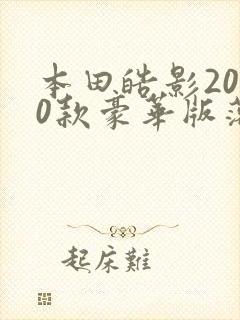 本田皓影20
0款豪华版落
起床難